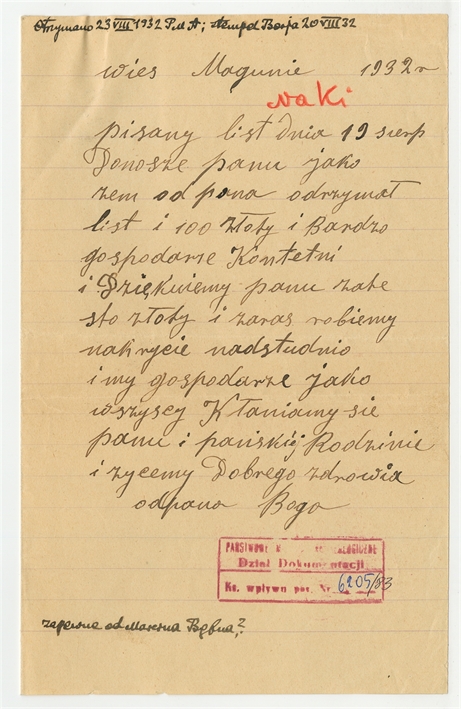 Otrzymano 23 VIII 1932 P.d.A; stempel Borja 20 VIII 32
wies Magunie 1932 r
Naki
pisany list dnia 19 sierp
Donosze panu jako
zem od pana odrzymał
list i 100 złoty i Bardzo
gospodarze Kontetni
i Dziękujemy panu zate
sto złoty i zaras robiemy
nakrycie nadstudnio
i my gospodarze jako
wszyscy Kłaniamy sie
panu i pańskiej Rodzinie
i zycemy Dobrego zdrowia
odpana Boga
PAŃSTWOWE
Dział Dokumentacji
Ks. wpływu poz. Nr. 6205/83
zapewne od Marcina Bębna?